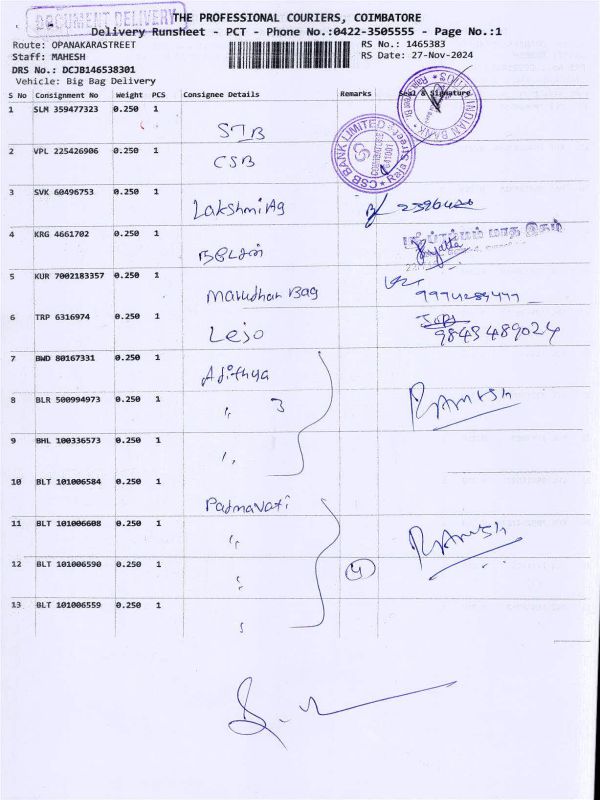 DOCUMENT DELIVERY
THE PROFESSIONAL COURIERS, COIMBATORE
Delivery Runsheet - PCT - Phone No.:0422-3505555 - Page No.:1
Route: OPANAKARASTREET
RS No.: 1465383
Staff: MAHESH
RS Date: 27-Nov-2024
DRS No.: DCJB146538301
Vehicle: Big Bag Delivery
S No Consignment No Weight PCS Consignee Details Remarks Seal & Signature
1 SLM 359477323 0.250 1 STB
INDIAN BANK
2 VPL 225426906 0.250 1 CSB
CSB BANK LIMITED
COIMBATORE
641001
3 SVK 60496753 0.250 1 Lakshmi Ag
4 KRG 4661702 0.250 1 நடேசன்
5 KUR 7002183357 0.250 1 Marudhar Bag
6 TRP 6316974 0.250 1 Lejo 9843489024
7 BWD 80167331 0.250 1 Adithya
8 BLR 500994973 0.250 1 " 3 Ramesh
9 BHL 100336573 0.250 1 "
10 BLT 101006584 0.250 1 Padmavati
11 BLT 101006608 0.250 1 " Ramesh
12 BLT 101006590 0.250 1 " 4
13 BLT 101006559 0.250 1 "